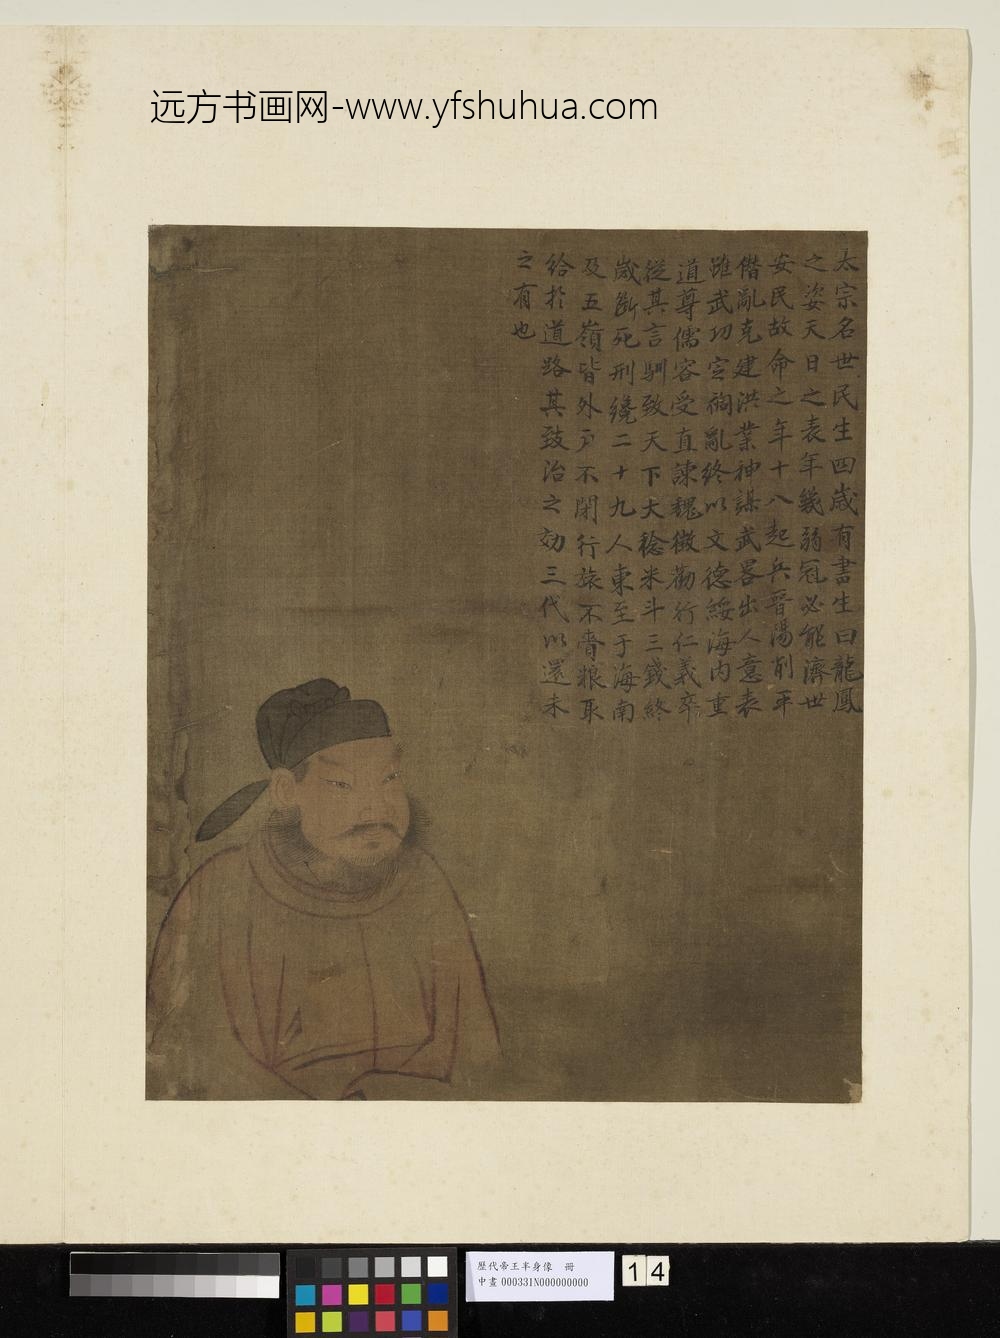 远方书画网-www.yfshuhua.com
太宗名世民生四歲有書生曰龍鳳
之姿天日之表年幾弱冠必能濟世
安民故命之年十八起兵晉陽削平
僭亂克建洪業神謀武畧出人意表
雖武功定禍亂終以文德綏海内重
道尊儒容受直諫魏徵勸行仁義卒
從其言馴致天下大稔米斗三錢終
歲斷死刑纔二十九人東至于海南
及五嶺皆外戶不閉行旅不賫粮取
給於道路其致治之効三代以還未
之有也
歷代帝王半身像 冊
中畫 000331N000000000
14